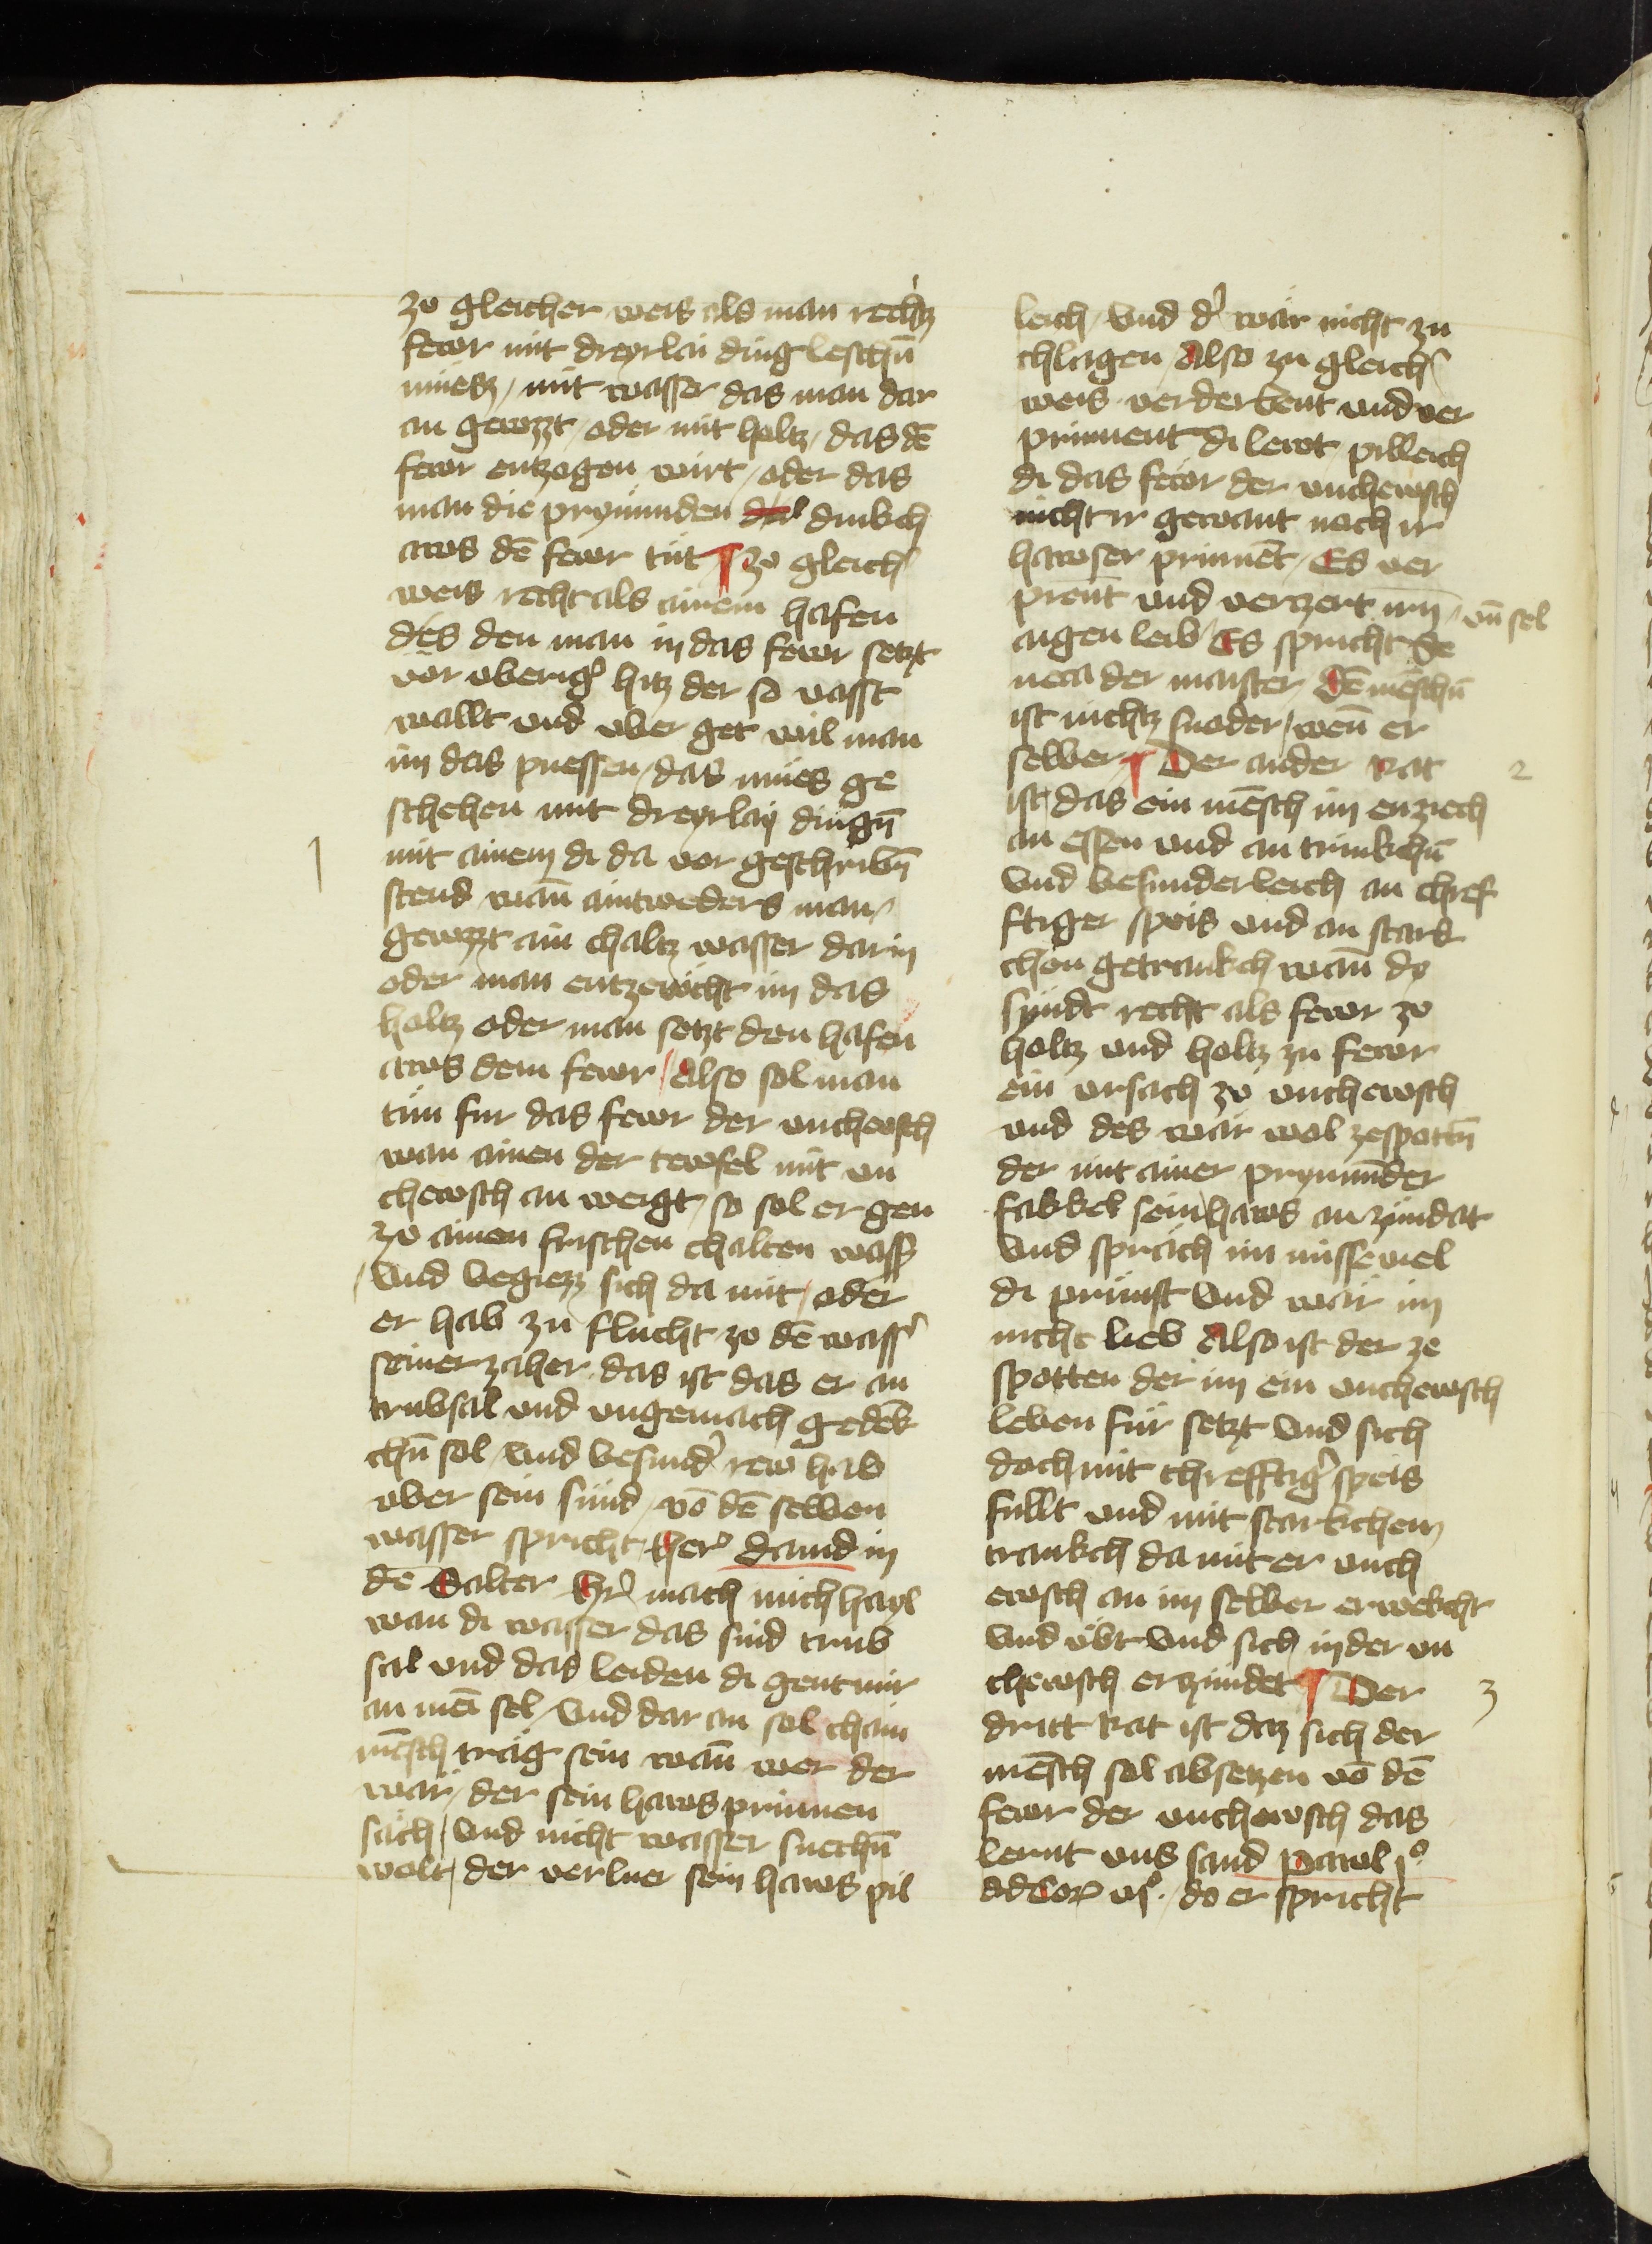 zo gleicher weis als man rechtz
fewr mit dreyrlai ding leschn̄
muesz / mit wasser das man dar
an gewzzt / oder mit holtz / das dē
fewr entzogen wirt / oder das
man die prynnunden dinkch
aws dē fewr tüt ¶ zo gleich
weis recht als ainem hafen
des den man in das fewr setzt
vor vberig hitz der so vasst
wallt vnd vber get wil man
im das puessen / das mues ge
schehen mit dreyrlay dingn̄
1
mit ainem di da vor geschribn̄
stend wan̄ aintweders man
gewzzt ain chaltz wasser darin
oder man entzewcht im das
holtz oder man setzt den hafen
aws dem fewr / Also sol man
tün fur das fewr der vnchewsch
wan ainen der tewfel mit vn
chewsch an weigt / so sol er gen
zo ainen frischen chalten wass
vnd begiezz sich da mit / oder
er hab zu flucht zo dē wass
seiner zäher das ist das er an
trubsal vnd vngemach gedēk
chn̄ sol / vnd besund rew hab
vber sein sünd / vō dē selben
wasser spricht her dauid in
dē Salter Hr mach mich hayl
wan di wasser das sind trub
sal vnd das leiden di gent mir
an mei sel / vnd dar an sol chain
mēsch träg sein wan̄ wer der
wär / der sein haws prinnen
säch / vnd nicht wasser suechn̄
wolt / der verlur sein haws pil
leich / vnd d wär nicht zu
chlagen / Also zu gleich
weis verderbent vnd ver
prinnent di lewt pilleich
di das fewr der vnchewsch
nicht ir gewant noch ir
hawser prinnēt / Es ver
prent vnd verzert irn / vn̄ sel
aigen leib / Es spricht Se
neca der maister Dē mēschn̄
ist nichtz snoder / wen̄ er
selber ¶ Der ander Rat
2
ist das ein mēsch im enziech
an essen vnd an trinkchn̄
vnd besunderleich an chref
ftiger speis vnd an stark
chen getrankch wan̄ do
syndt recht als fewr zo
holtz vnd holtz zu fewr
ein vrsach zo vnchewsch
vnd des wär wol zespottn̄
der mit ainer prynnūder
fakkel sein haws an zündat
vnd spräch im missewiel
di prunst vnd wär im
nicht lieb Also ist der ze
spotten der im ein vnchewsch
leben für setzt vnd sich
doch mit chrefftig speis
füllt vnd mit starkchem
trankch da mit er vnch
ewsch an im selber erwekcht
vnd übt vnd sich in der vn
chewsch erzündet ¶ Der
3
dritt Rat ist daz sich der
mēsch sol absetzen vō dē
fewr der vnchewsch das
lernt vns sand pawl j°
ad Cor vj° / do er spricht